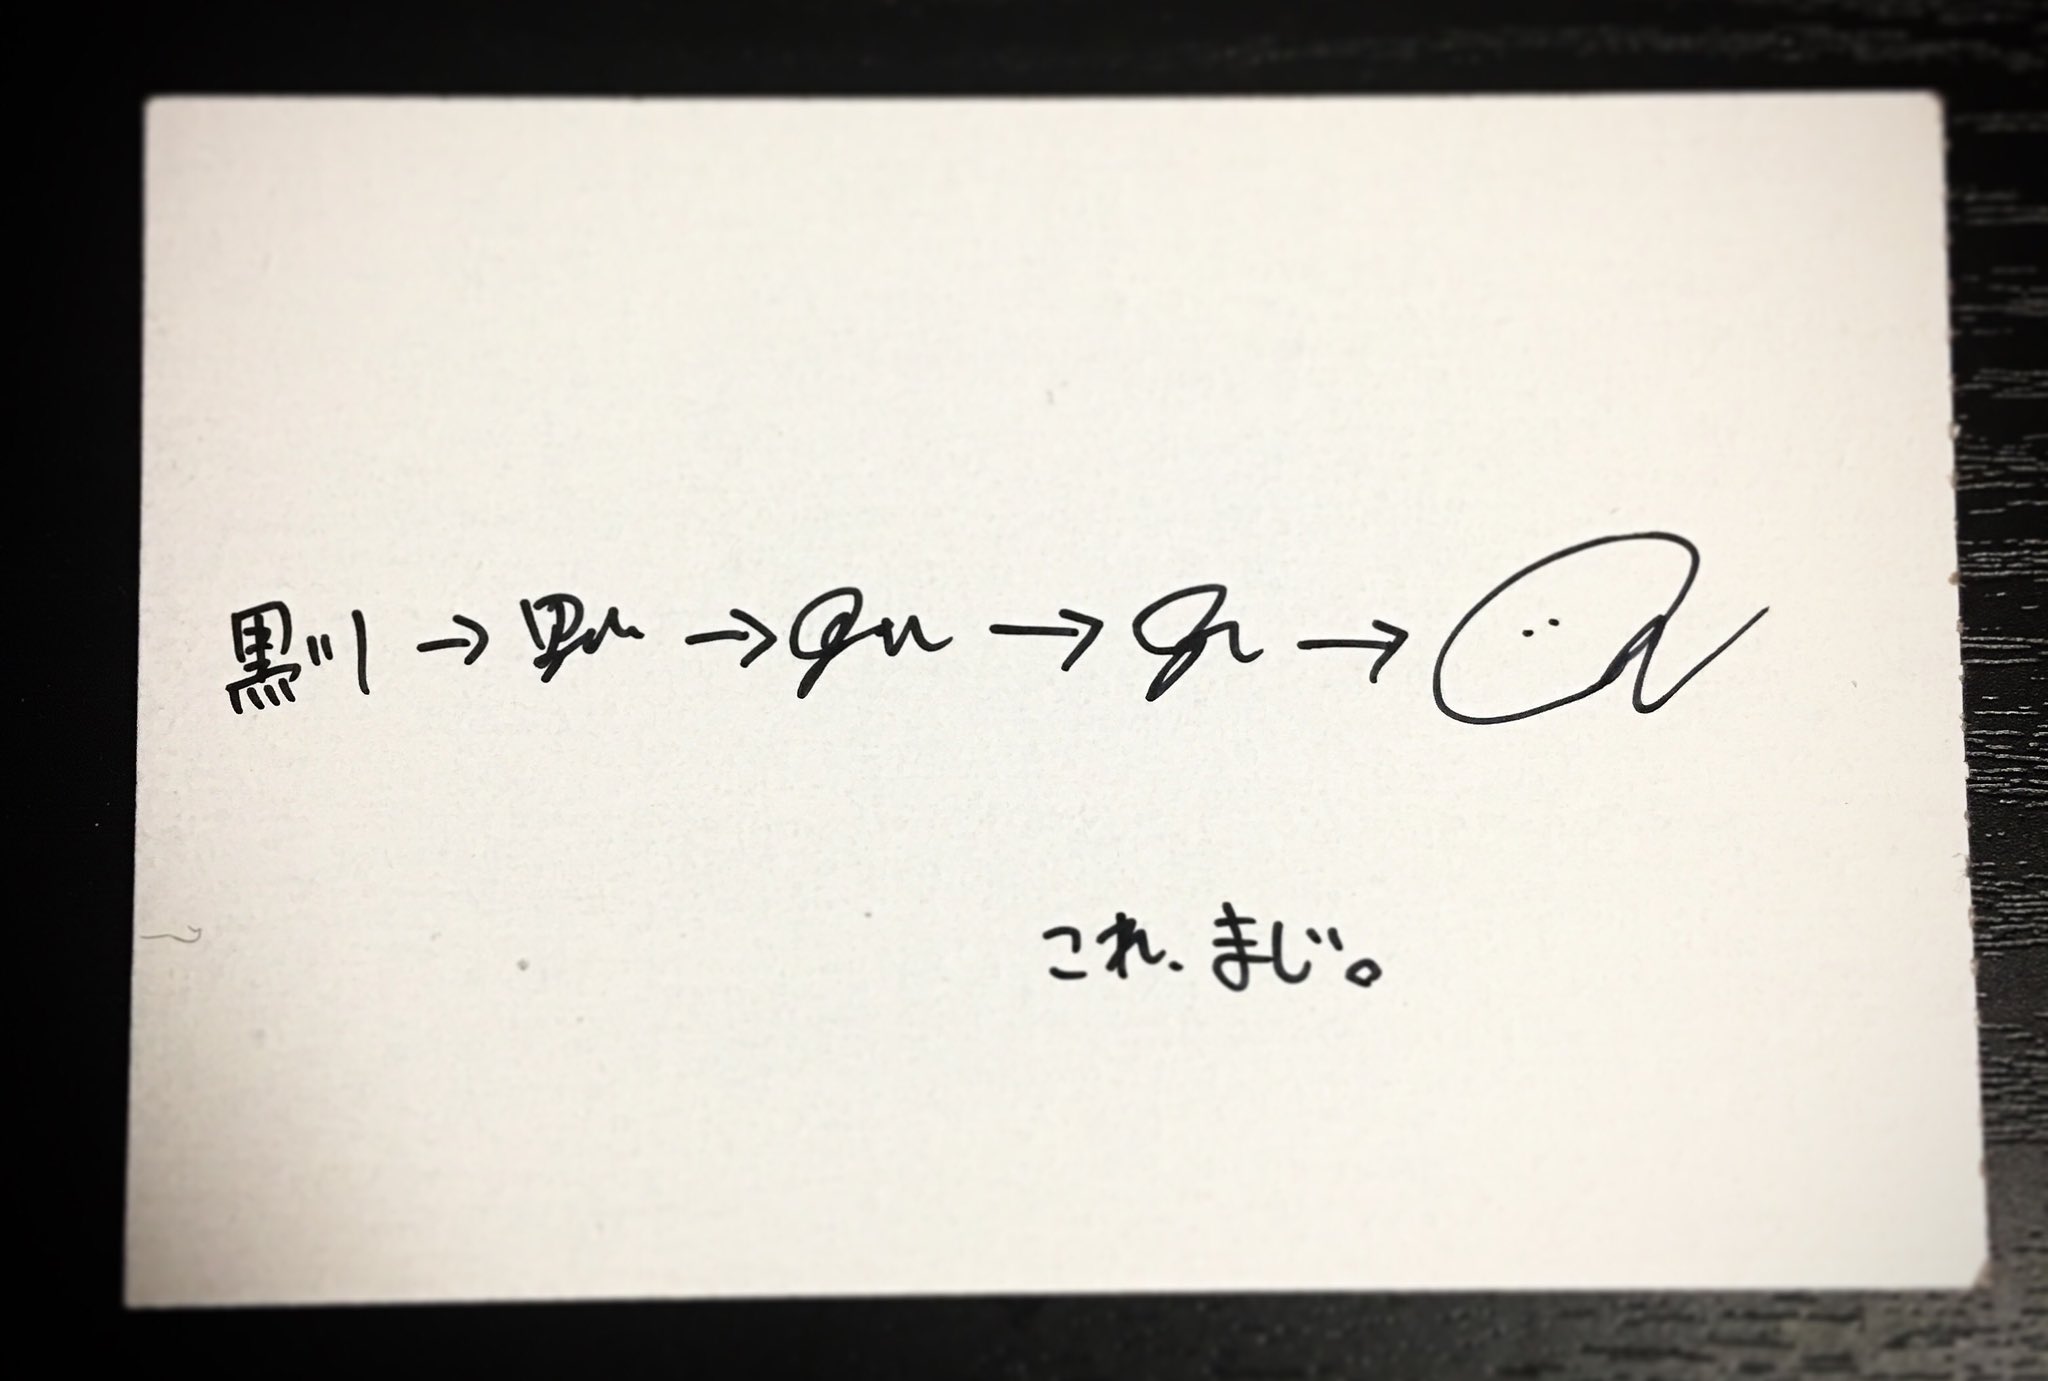 黒川 → → → →
これ、まじ。